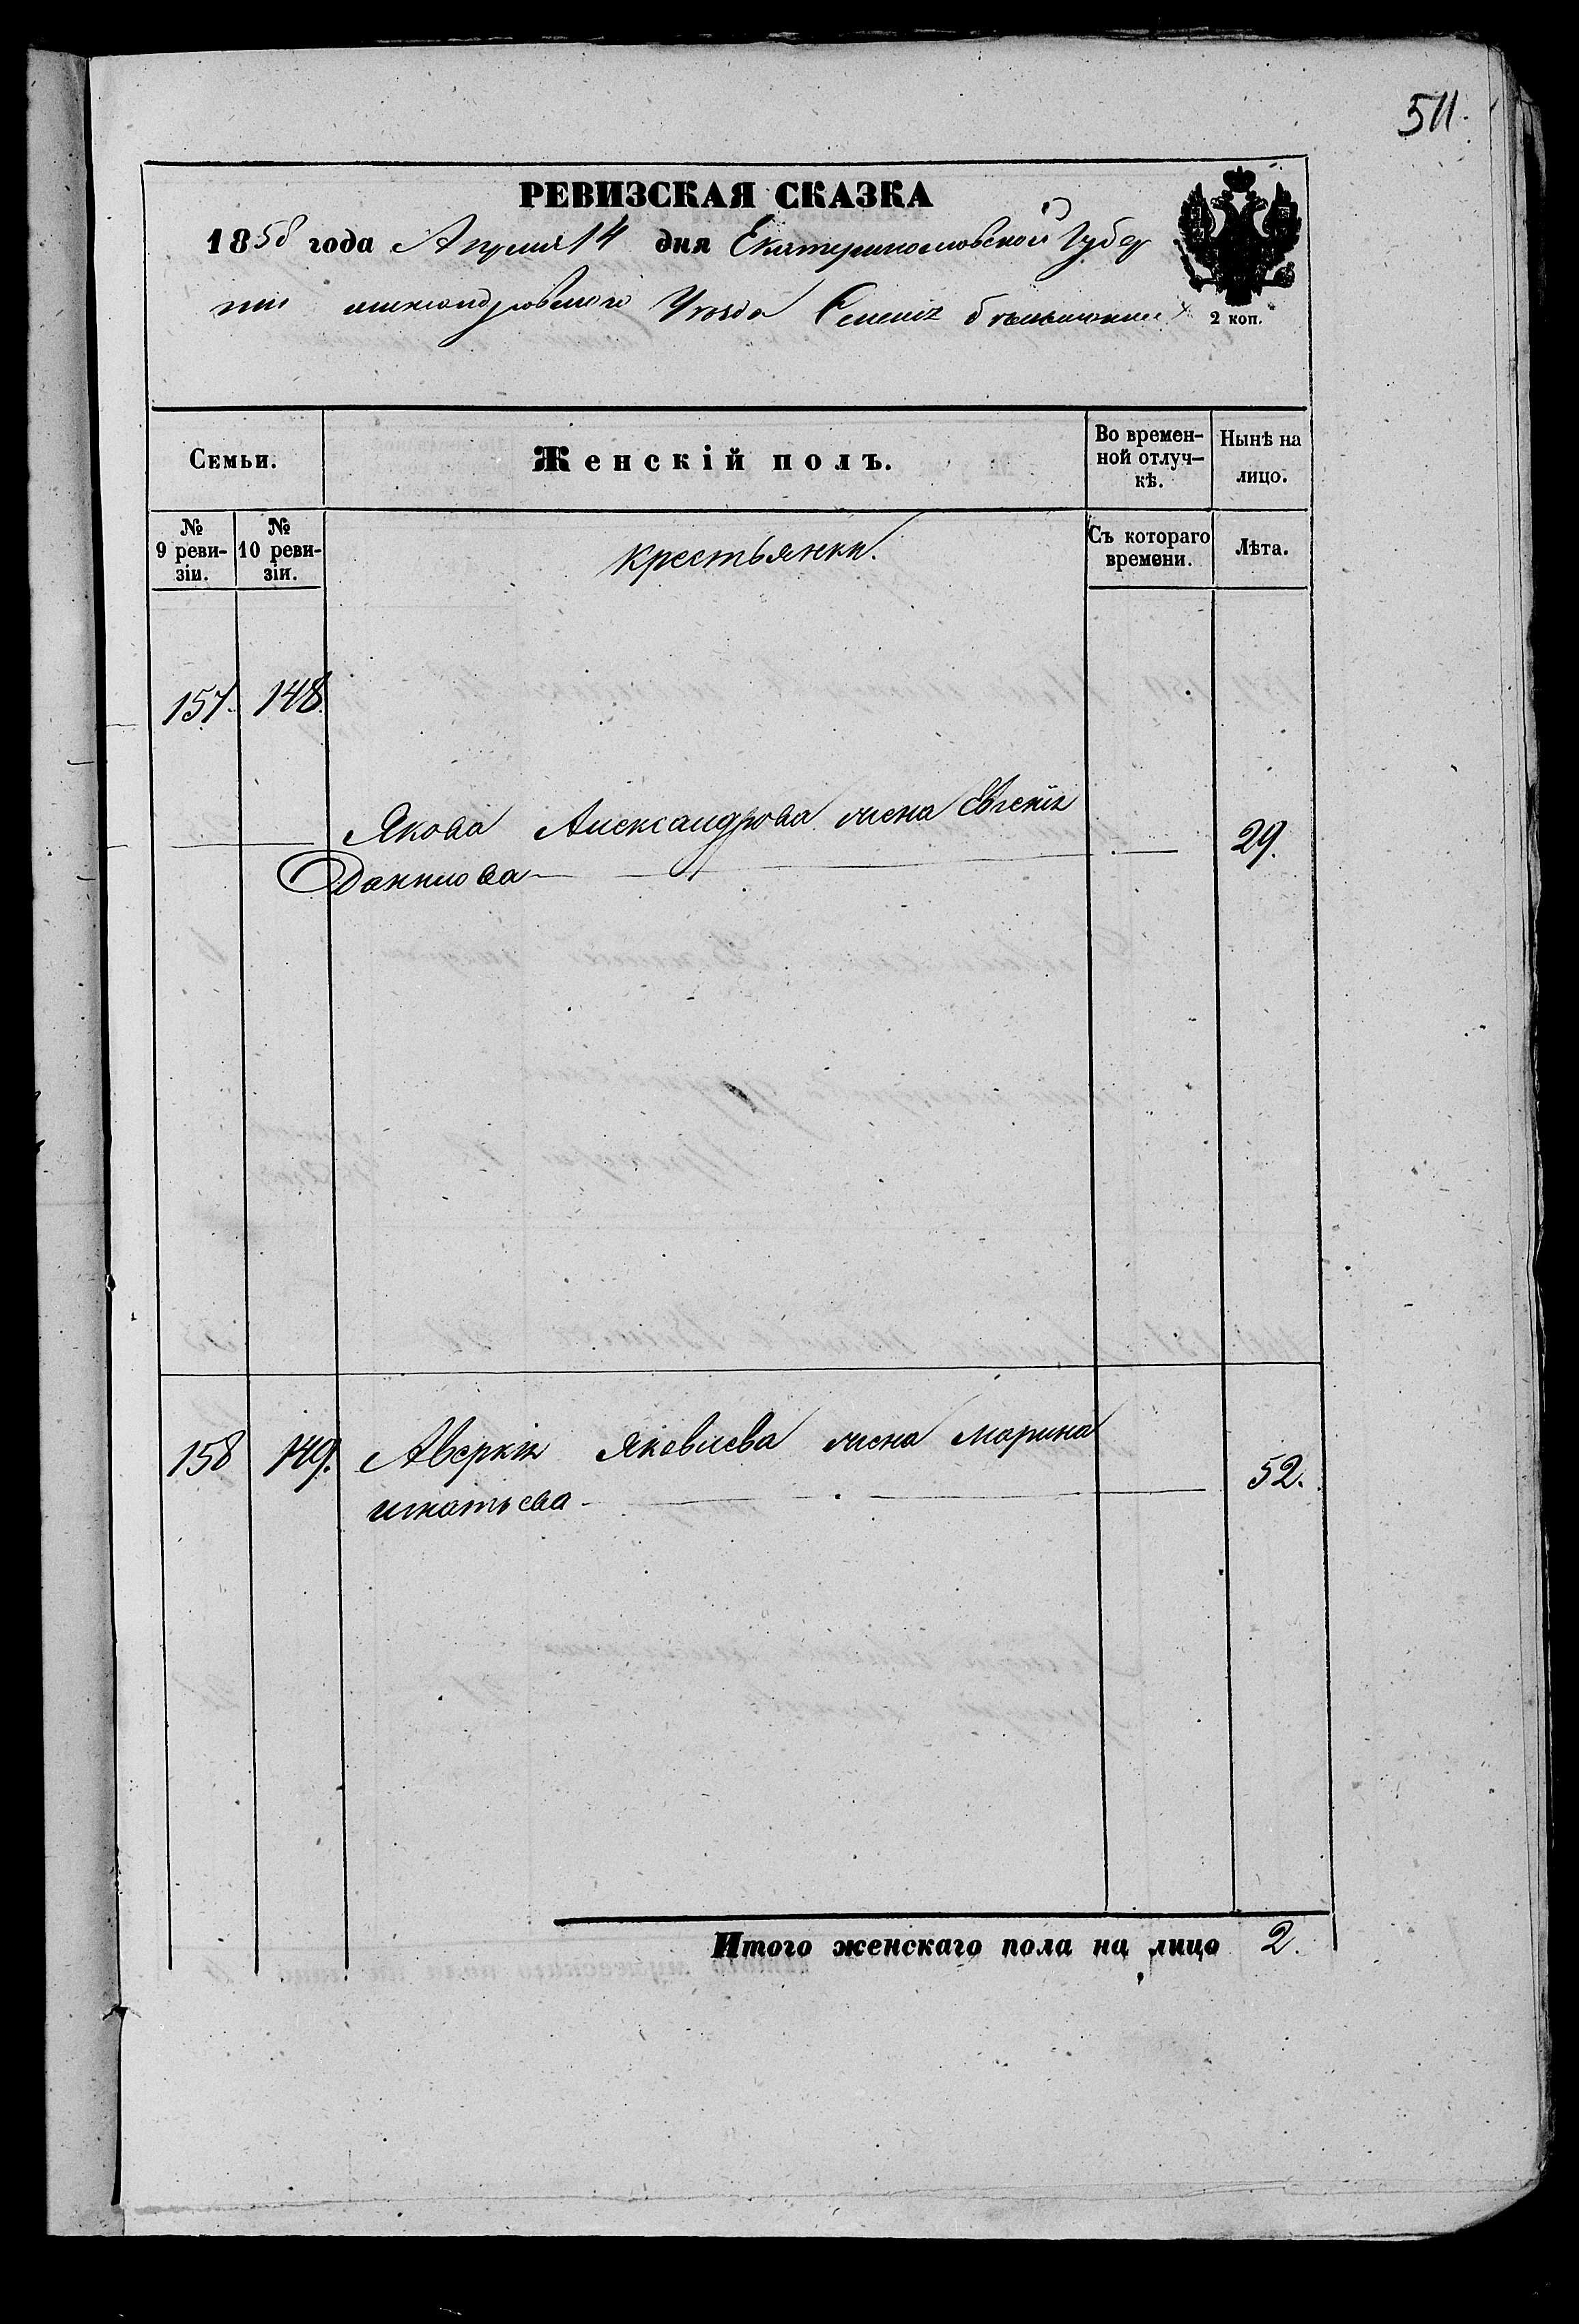 511.
РЕВИЗСКАЯ СКАЗКА
1858 года Апреля 14 дня Екатеринославской Губер
нии александровского Уезда Селенія
2 коп.
Семьи.
Женскій полъ.
Во времен-
ной отлуч-
кѣ.
Нынѣ на
лицо.
№
9 реви-
зіи.
№
10 реви-
зіи.
крестьянки.
Съ котораго
времени.
Лѣта.
157. 148.
Якова Александрова жена Евгенія 29.
Данилова
158 149. Аверкія Яковлева жена Марина 52.
игнатьева
Итого женскаго пола на лицо 2.